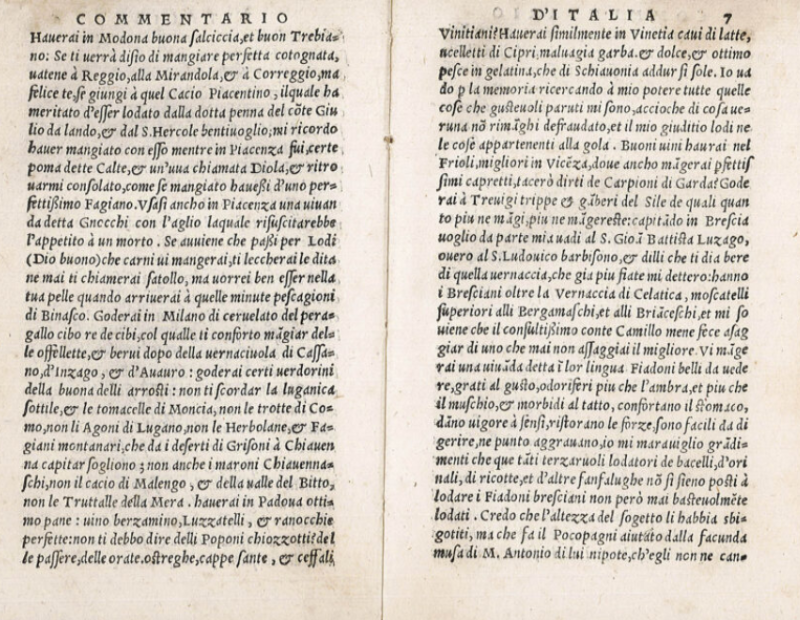 COMMENTARIO
Hauerai in Modona buona ſalciccia, et buon Trebia=
no: Se ti uerrà diſio di mangiare perfetta cotognata,
uatene à Reggio, alla Mirandola, & à Correggio, ma
felice te, ſe giungi à quel Cacio Piacentino, ilquale ha
meritato d'eſſer lodato dalla dotta penna del cõte Giu
lio da lando, & dal S. Hercole bentiuoglio; mi ricordo
hauer mangiato con eſſo mentre in Piacenza fui, certe
poma dette Calte, & un'uua chiamata Diola, & ritro
uarmi conſolato, come ſe mangiato haueſſi d'uno per=
fettißimo Fagiano. Vſaſi ancho in Piacenza una uiuan
da detta Gnocchi con l'aglio laquale riſuſcitarebbe
l'appetito à un morto. Se auuiene che paßi per Lodi
(Dio buono) che carni ui mangerai, ti leccherai le dita
ne mai ti chiamerai ſatollo, ma uorrei ben eſſer nella
tua pelle quando arriuerai à quelle minute peſcagioni
di Binaſco. Goderai in Milano di ceruelato del pera=
gallo cibo re de cibi, col qualle ti conforto mãgiar del=
le offellette, & berui dopo della uernaciuola di Caſſa=
no, d'Inzago, & d'Auauro: goderai certi uerdorini
della buona delli arroſti: non ti ſcordar la luganica
ſottile, & le tomacelle di Moncia, non le trotte di Co=
mo, non li Agoni di Lugano, non le Herbolane, & Fa=
giani montanari, che da i deſerti di Griſoni à Chiauen
na capitar ſogliono; non anche i maroni Chiauenna=
ſchi, non il cacio di Malengo, & della ualle del Bitto,
non le Truttalle della Mera. hauerai in Padoua otti=
mo pane: uino berzamino, Luzzatelli, & ranocchie
perfette: non ti debbo dire delli Poponi chiozzotti? del
le paſſere, delle orate. oſtreghe, cappe ſante, & ceffali
D'ITALIA 7
Vinitiani? Hauerai ſimilmente in Vinetia caui di latte,
uccelletti di Cipri, maluagia garba. & dolce, & ottimo
peſce in gelatina, che di Schiauonia addur ſi ſole. Io ua
do p la memoria ricercando à mio potere tutte quelle
coſe che guſteuoli paruti mi ſono, accioche di coſa ue=
runa nõ rimãghi defraudato, et il mio giuditio lodi ne
le coſe appartenenti alla gola. Buoni uini haurai nel
Frioli, migliori in Vicẽza, doue ancho mãgerai pfettiſ
ſimi capretti, tacerò dirti de Carpioni di Garda? Gode
rai à Treuigi trippe & gãberi del Sile de quali quan
to piu ne mãgi, piu ne mãgereſte: capitãdo in Breſcia
uoglio da parte mia uadi al S. Gioã Battiſta Luzago,
ouero al S. Ludouico barbiſono, & dilli che ti dia bere
di quella uernaccia, che gia piu fiate mi dettero: hanno
i Breſciani oltre la Vernaccia di Celatica, moſcatelli
ſuperiori alli Bergamaſchi, et alli Briãceſchi, et mi ſo
uiene che il conſultißimo conte Camillo mene fece aſag
giar di uno che mai non aſſaggiai il migliore. Vi mãge
rai una uiuãda detta ĩ lor lingua Fiadoni belli da uede
re, grati al guſto, odoriferi piu che l'ambra, et piu che
il muſchio, & morbidi al tatto, confortano il ſtomaco,
dãno uigore à ſenſi, riſtorano le forze, ſono facili da di
gerire, ne punto aggrauano, io mi marauiglio grãdi=
menti che tãti terzaruoli lodatori de bacelli, d'ori
nali, di ricotte, et d'altre fanfalughe nõ ſi ſieno poſti à
lodare i Fiadoni breſciani non però mai baſteuolmẽte
lodati. Credo che l'altezza del ſogetto li habbia sbi=
gotiti, ma che fa il Pocopagni aiutato dalla facunda
muſa di M. Antonio di lui nipote, ch'egli non ne can=